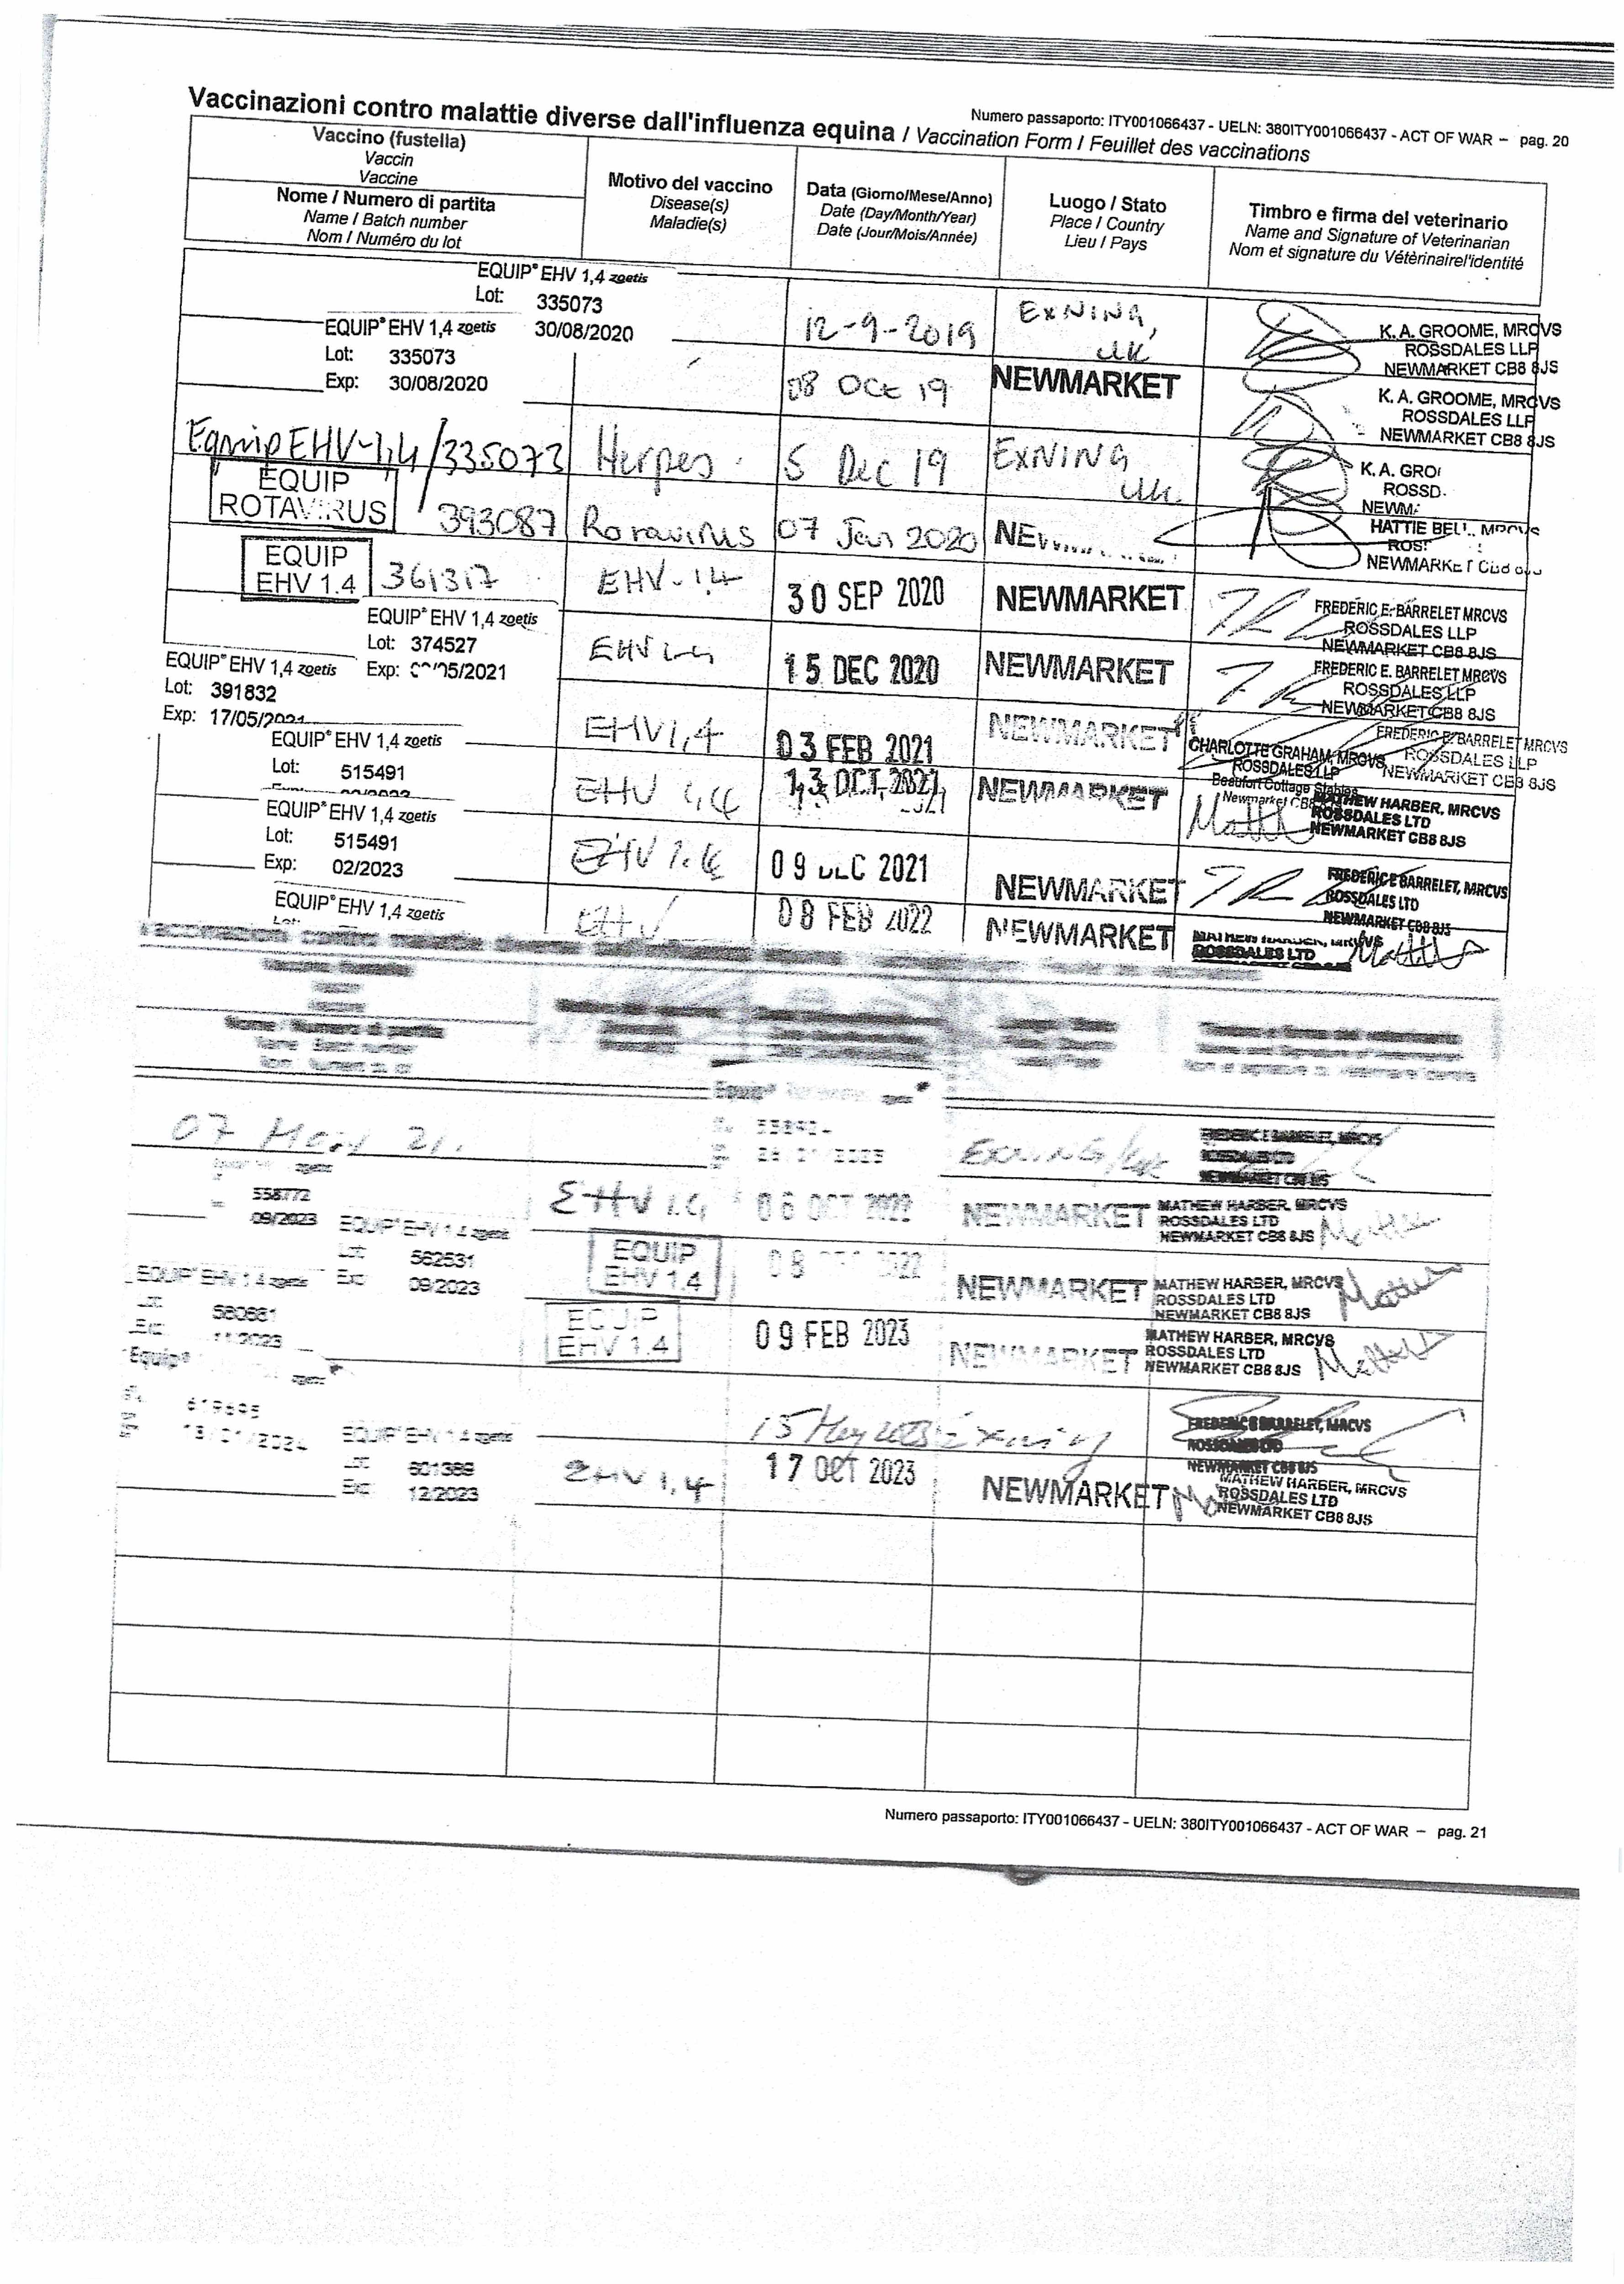 Numero passaporto: ITY001066437 - UELN: 380ITY001066437 - ACT OF WAR – pag. 20
Vaccinazioni contro malattie diverse dall'influenza equina / Vaccination Form / Feuillet des vaccinations
Vaccino (fustella)
Vaccin
Vaccine
Nome / Numero di partita
Name / Batch number
Nom / Numéro du lot
Motivo del vaccino
Disease(s)
Maladie(s)
Data (Giorno/Mese/Anno)
Date (Day/Month/Year)
Date (Jour/Mois/Année)
Luogo / Stato
Place / Country
Lieu / Pays
Timbro e firma del veterinario
Name and Signature of Veterinarian
Nom et signature du Vétérinairel'identité
EQUIP® EHV 1,4 zoetis
Lot: 335073
30/08/2020
12-9-2019
EXNING,
UK
K. A. GROOME, MRCVS
ROSSDALES LLP
NEWMARKET CB8 8JS
EQUIP® EHV 1,4 zoetis
Lot: 335073
Exp: 30/08/2020
08 OCT 19
NEWMARKET
K. A. GROOME, MRCVS
ROSSDALES LLP
NEWMARKET CB8 8JS
Equip EHV-1,4/335073
Herpes.
5 Dec 19
EXNING
UK.
K. A. GRO
ROSSD.
NEWM
EQUIP
ROTAVIRUS
393087
Rotavirus
07 Jan 2020
HATTIE BELL, MRCVS
NEWMARKET
EQUIP
EHV 1.4
361317
EHV-1.4
30 SEP 2020
NEWMARKET
FREDERIC E. BARRELET MRCVS
ROSSDALES LLP
NEWMARKET CB8 8JS
EQUIP® EHV 1,4 zoetis
Lot: 374527
Exp: /05/2021
EHV 1.4
15 DEC 2020
NEWMARKET
FREDERIC E. BARRELET MRCVS
ROSSDALES LLP
NEWMARKET CB8 8JS
EQUIP® EHV 1,4 zoetis
Lot: 391832
Exp: 17/05/2021
EHV 1,4
03 FEB 2021
NEWMARKET
FREDERIC E. BARRELET MRCVS
ROSSDALES LLP
NEWMARKET CB8 8JS
CHARLOTTE GRAHAM, MRCVS
ROSSDALES LLP
Beaufort Cottage Stables
Newmarket CB8
EQUIP® EHV 1,4 zoetis
Lot: 515491
EHV 1,4
13 OCT 2021
NEWMARKET
MATHEW HARBER, MRCVS
ROSSDALES LTD
NEWMARKET CB8 8JS
EQUIP® EHV 1,4 zoetis
Lot: 515491
Exp: 02/2023
EHV 1.4
09 DEC 2021
NEWMARKET
FREDERIC E BARRELET, MRCVS
ROSSDALES LTD
NEWMARKET CB8 8JS
EQUIP® EHV 1,4 zoetis
Lot:
EHV
08 FEB 2022
NEWMARKET
MATHEW HARBER, MRCVS
ROSSDALES LTD
Nome / Numero di partita
Equip®
07
EXNING/UK
FREDERIC E BARRELET, MRCVS
ROSSDALES LTD
NEWMARKET CB8 8JS
558772
09/2023
EHV 1.4
06 OCT 2022
NEWMARKET
MATHEW HARBER, MRCVS
ROSSDALES LTD
NEWMARKET CB8 8JS
EQUIP® EHV 1,4 zoetis
Lot: 562531
Exp: 09/2023
EQUIP
EHV 1.4
08 2022
NEWMARKET
MATHEW HARBER, MRCVS
ROSSDALES LTD
NEWMARKET CB8 8JS
EQUIP® EHV 1,4 zoetis
Exp: 11/2023
EQUIP
EHV 1.4
09 FEB 2023
NEWMARKET
MATHEW HARBER, MRCVS
ROSSDALES LTD
NEWMARKET CB8 8JS
Equip®
15 May 2023
Exning
FREDERIC E BARRELET, MRCVS
ROSSDALES LTD
NEWMARKET CB8 8JS
EQUIP® EHV 1,4 zoetis
Lot: 601389
Exp: 12/2023
EHV 1,4
17 OCT 2023
NEWMARKET
MATHEW HARBER, MRCVS
ROSSDALES LTD
NEWMARKET CB8 8JS
Numero passaporto: ITY001066437 - UELN: 380ITY001066437 - ACT OF WAR – pag. 21